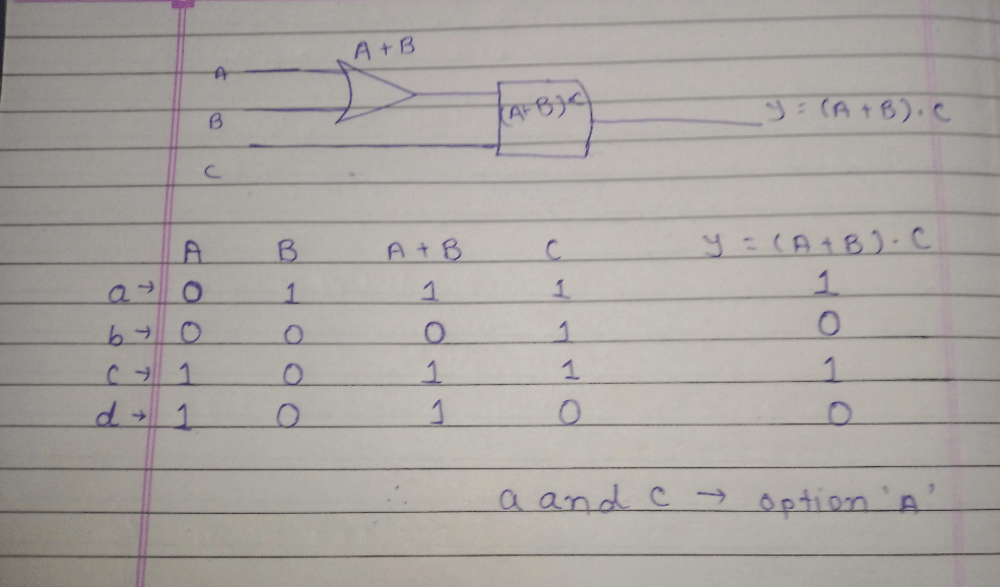 A + B
A
B
C
(A+B)·C
y = (A + B) . C
A B A + B C y = (A + B) . C
a → 0 1 1 1 1
b → 0 0 0 1 0
c → 1 0 1 1 1
d → 1 0 1 0 0
∴ a and c → option 'A'